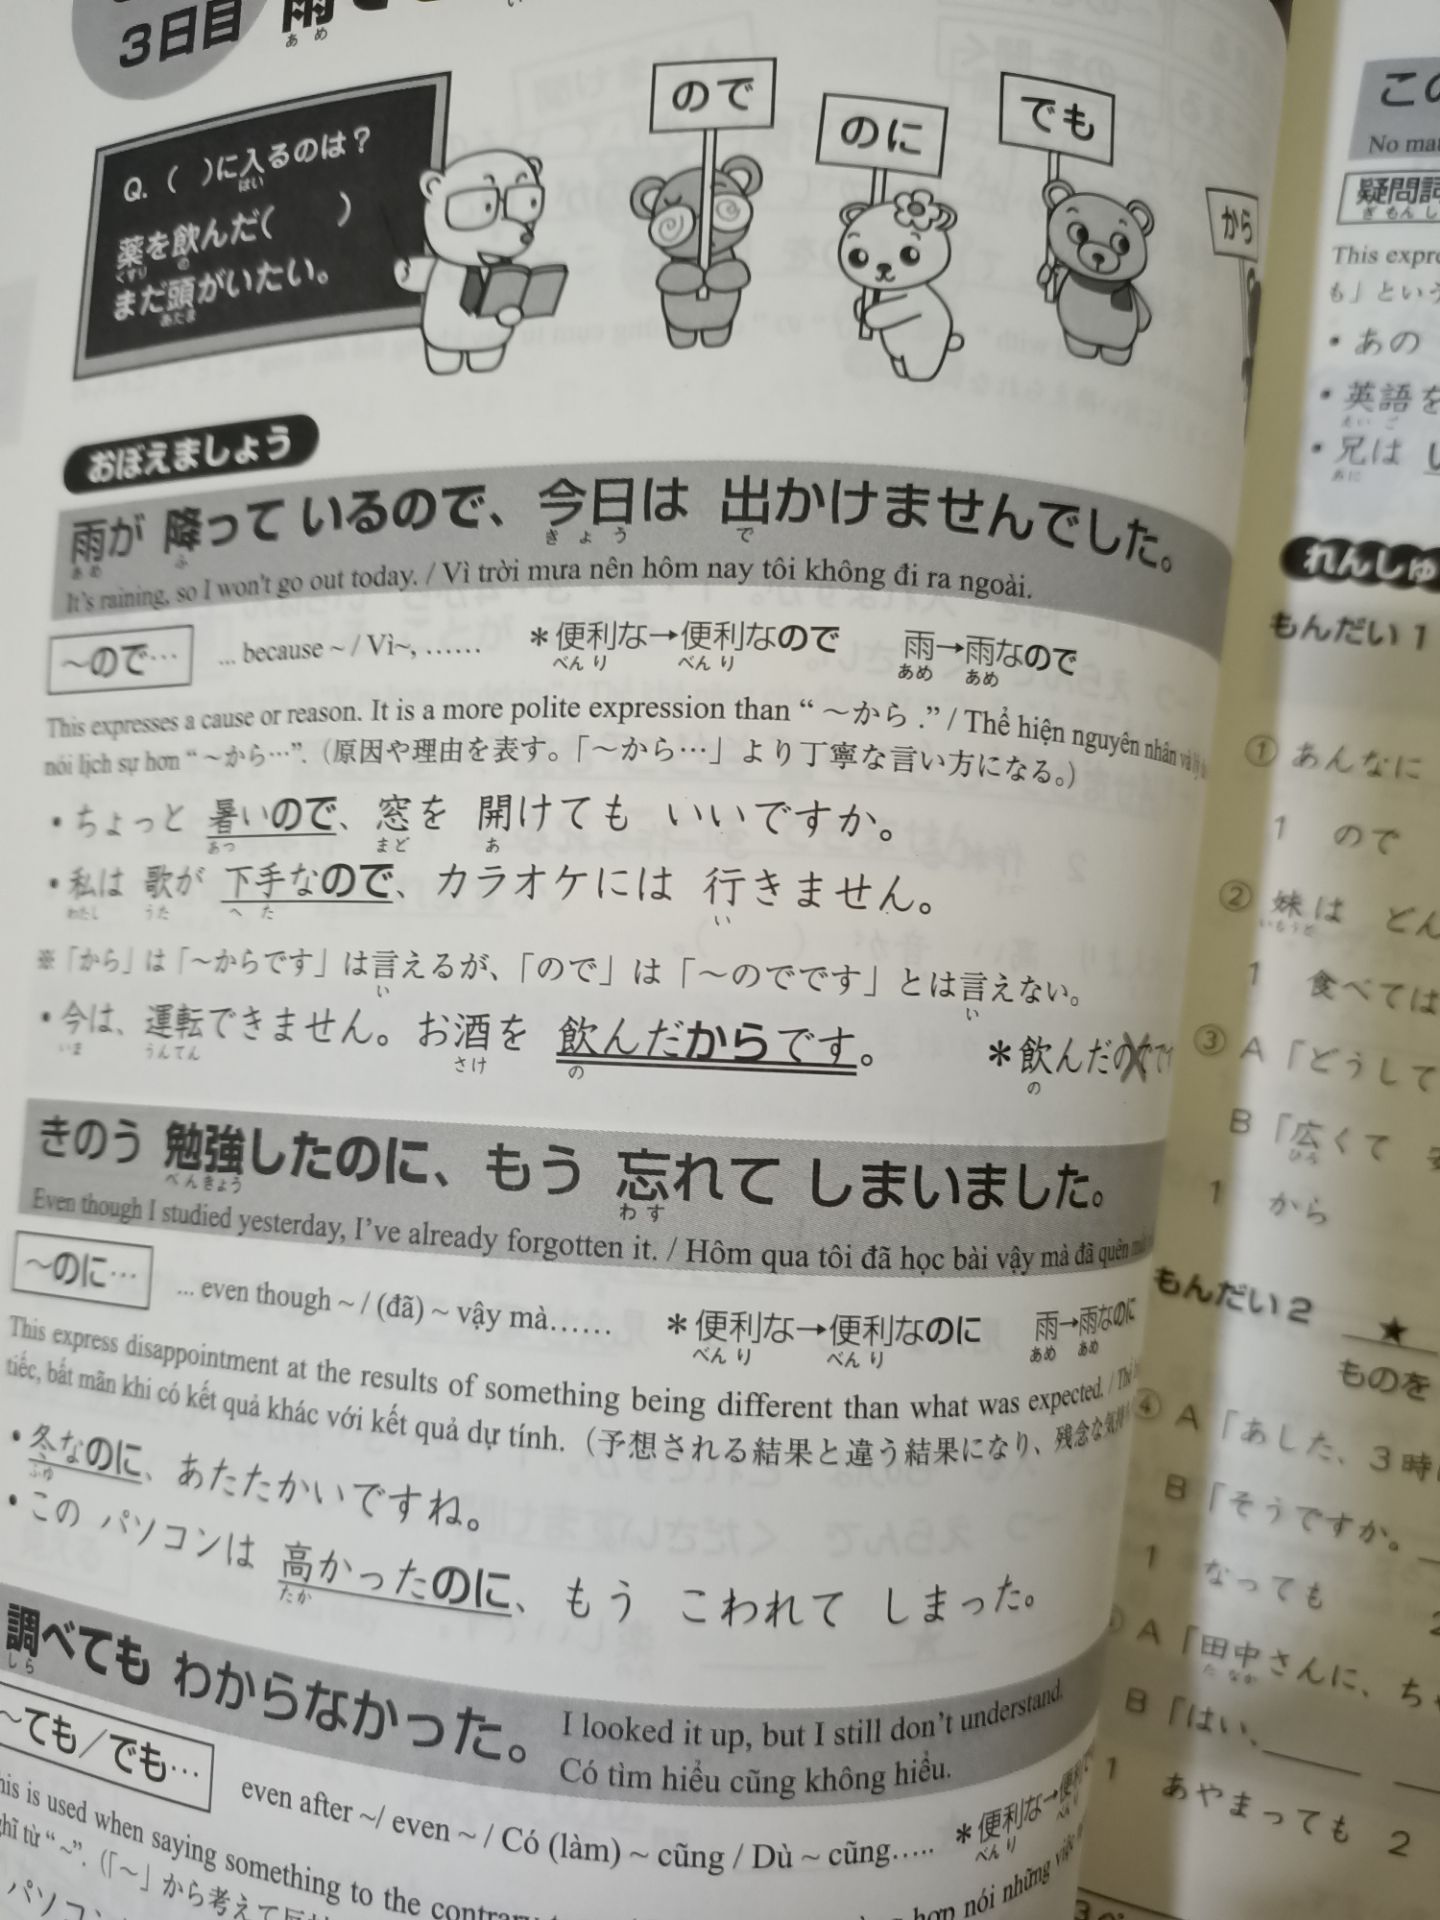 3日目 雨
あめ
Q.( )に入るのは?
はい
薬を飲んだ( )
くすり の
まだ頭がいたい。
あたま
ので
のに
でも
から
おぼえましょう
雨が 降って いるので、今日は 出かけませんでした。
あめ ふ きょう で
It's raining, so I won't go out today. / Vì trời mưa nên hôm nay tôi không đi ra ngoài.
～ので… ... because ~ / Vì~, …… ＊便利な→便利なので 雨→雨なので
べんり べんり あめ あめ
This expresses a cause or reason. It is a more polite expression than “ ～から .” / Thể hiện nguyên nhân và
nói lịch sự hơn “ ～から…”.（原因や理由を表す。「～から…」より丁寧な言い方になる。）
・ちょっと 暑いので、窓を 開けても いいですか。
あつ まど あ
・私は 歌が 下手なので、カラオケには 行きません。
わたし うた へた い
※「から」は「～からです」は言えるが、「ので」は「～のでです」とは言えない。
い い
・今は、運転できません。お酒を 飲んだからです。 ＊飲んだのでです
いま うんてん さけ の の
きのう 勉強したのに、もう 忘れて しまいました。
べんきょう わす
Even though I studied yesterday, I’ve already forgotten it. / Hôm qua tôi đã học bài vậy mà đã quên
～のに… ... even though ~ / (đã) ~ vậy mà…… ＊便利な→便利なのに 雨→雨なのに
べんり べんり あめ あめ
This express disappointment at the results of something being different than what was expected. /
tiếc, bất mãn khi có kết quả khác với kết quả dự tính.（予想される結果と違う結果になり、残念な気持
・冬なのに、あたたかいですね。
ふゆ
・この パソコンは 高かったのに、もう こわれて しまった。
たか
調べても わからなかった。 I looked it up, but I still don’t understand.
しら
Có tìm hiểu cũng không hiểu.
～ても／でも… even after ~/ even ~ / Có (làm) ~ cũng / Dù ~ cũng….. ＊便利な→便利
べんり べんり
This is used when saying something to the contrary
nói những việc
từ “ ~”.（「～」から考えて
パソコン
この
疑問詞
ぎもんし
This
も」という
・あの
・英語を
えいご
・兄は
あに
れんしゅ
もんだい1
① あんなに
1 ので
② 妹は どん
いもうと
1 食べては
③ A「どうして
B「広くて
ひろ
1 から
もんだい2 ★
ものを
④ A「あした、3時
B「そうですか。
1 なっても 2
A「田中さんに、ちゃ
たなか
B「はい、
1 あやまっても 2